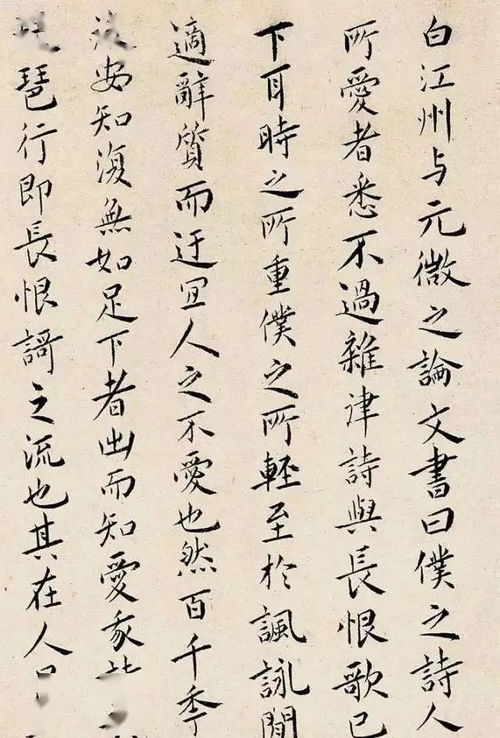 白江州与元微之論文書曰僕之詩人
所愛者悉不過雜津詩與長恨歌已
下耳時之所重僕之所輕至於諷詠閒
適辭質而迂宜人之不愛也然百千季
後安知復無如足下者出而知愛我
琶行即長恨謌之流也其在人口